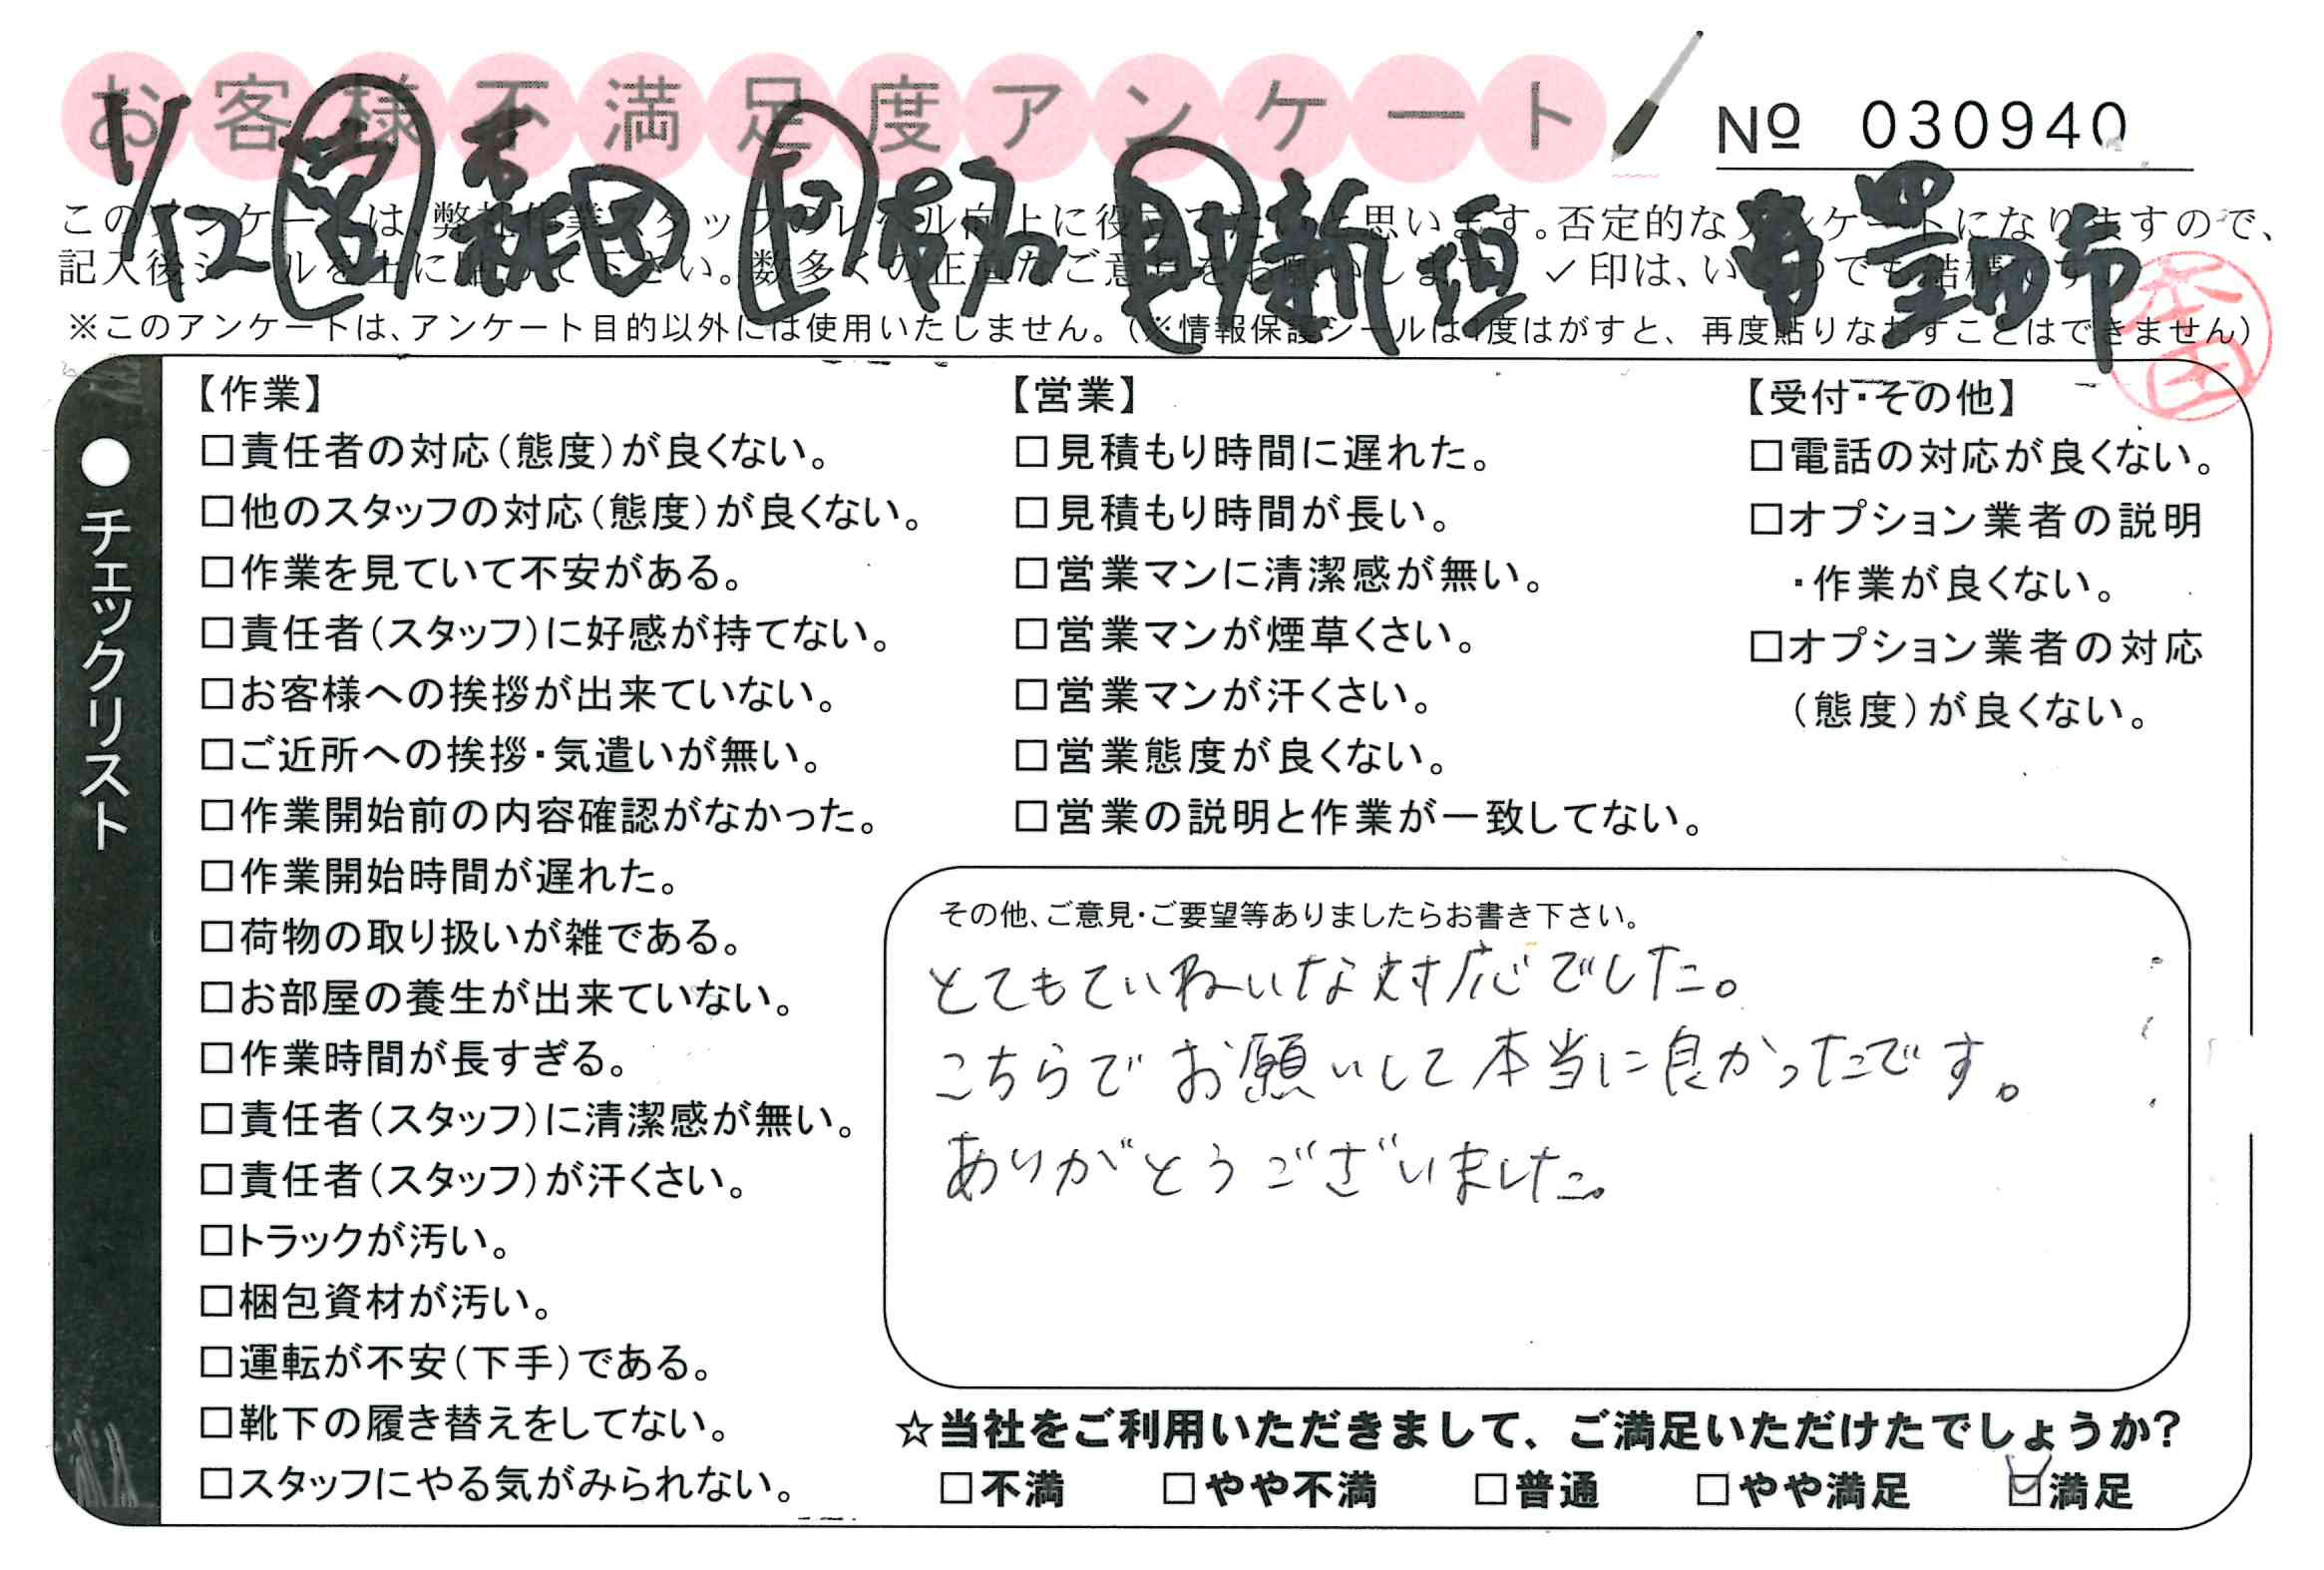 お客様不満足度アンケート
№ 030940
1/12 営
このアンケートは、弊社作業スタッフのレベル向上に役立てたいと思います。否定的なアンケートになりますので、
記入後シールを上に貼って下さい。数多くの正直なご意見をお願いします。✓印は、いくつでも結構です。
※このアンケートは、アンケート目的以外には使用いたしません。(※情報保護シールは1度はがすと、再度貼りなおすことはできません)
本田
●チェックリスト
【作業】
□責任者の対応(態度)が良くない。
□他のスタッフの対応(態度)が良くない。
□作業を見ていて不安がある。
□責任者(スタッフ)に好感が持てない。
□お客様への挨拶が出来ていない。
□ご近所への挨拶・気遣いが無い。
□作業開始前の内容確認がなかった。
□作業開始時間が遅れた。
□荷物の取り扱いが雑である。
□お部屋の養生が出来ていない。
□作業時間が長すぎる。
□責任者(スタッフ)に清潔感が無い。
□責任者(スタッフ)が汗くさい。
□トラックが汚い。
□梱包資材が汚い。
□運転が不安(下手)である。
□靴下の履き替えをしてない。
□スタッフにやる気がみられない。
【営業】
□見積もり時間に遅れた。
□見積もり時間が長い。
□営業マンに清潔感が無い。
□営業マンが煙草くさい。
□営業マンが汗くさい。
□営業態度が良くない。
□営業の説明と作業が一致してない。
【受付・その他】
□電話の対応が良くない。
□オプション業者の説明
・作業が良くない。
□オプション業者の対応
(態度)が良くない。
その他、ご意見・ご要望等ありましたらお書き下さい。
とてもていねいな対応でした。
こちらでお願いして本当に良かったです。
ありがとうございました。
☆当社をご利用いただきまして、ご満足いただけたでしょうか?
□不満 □やや不満 □普通 □やや満足 ☑満足